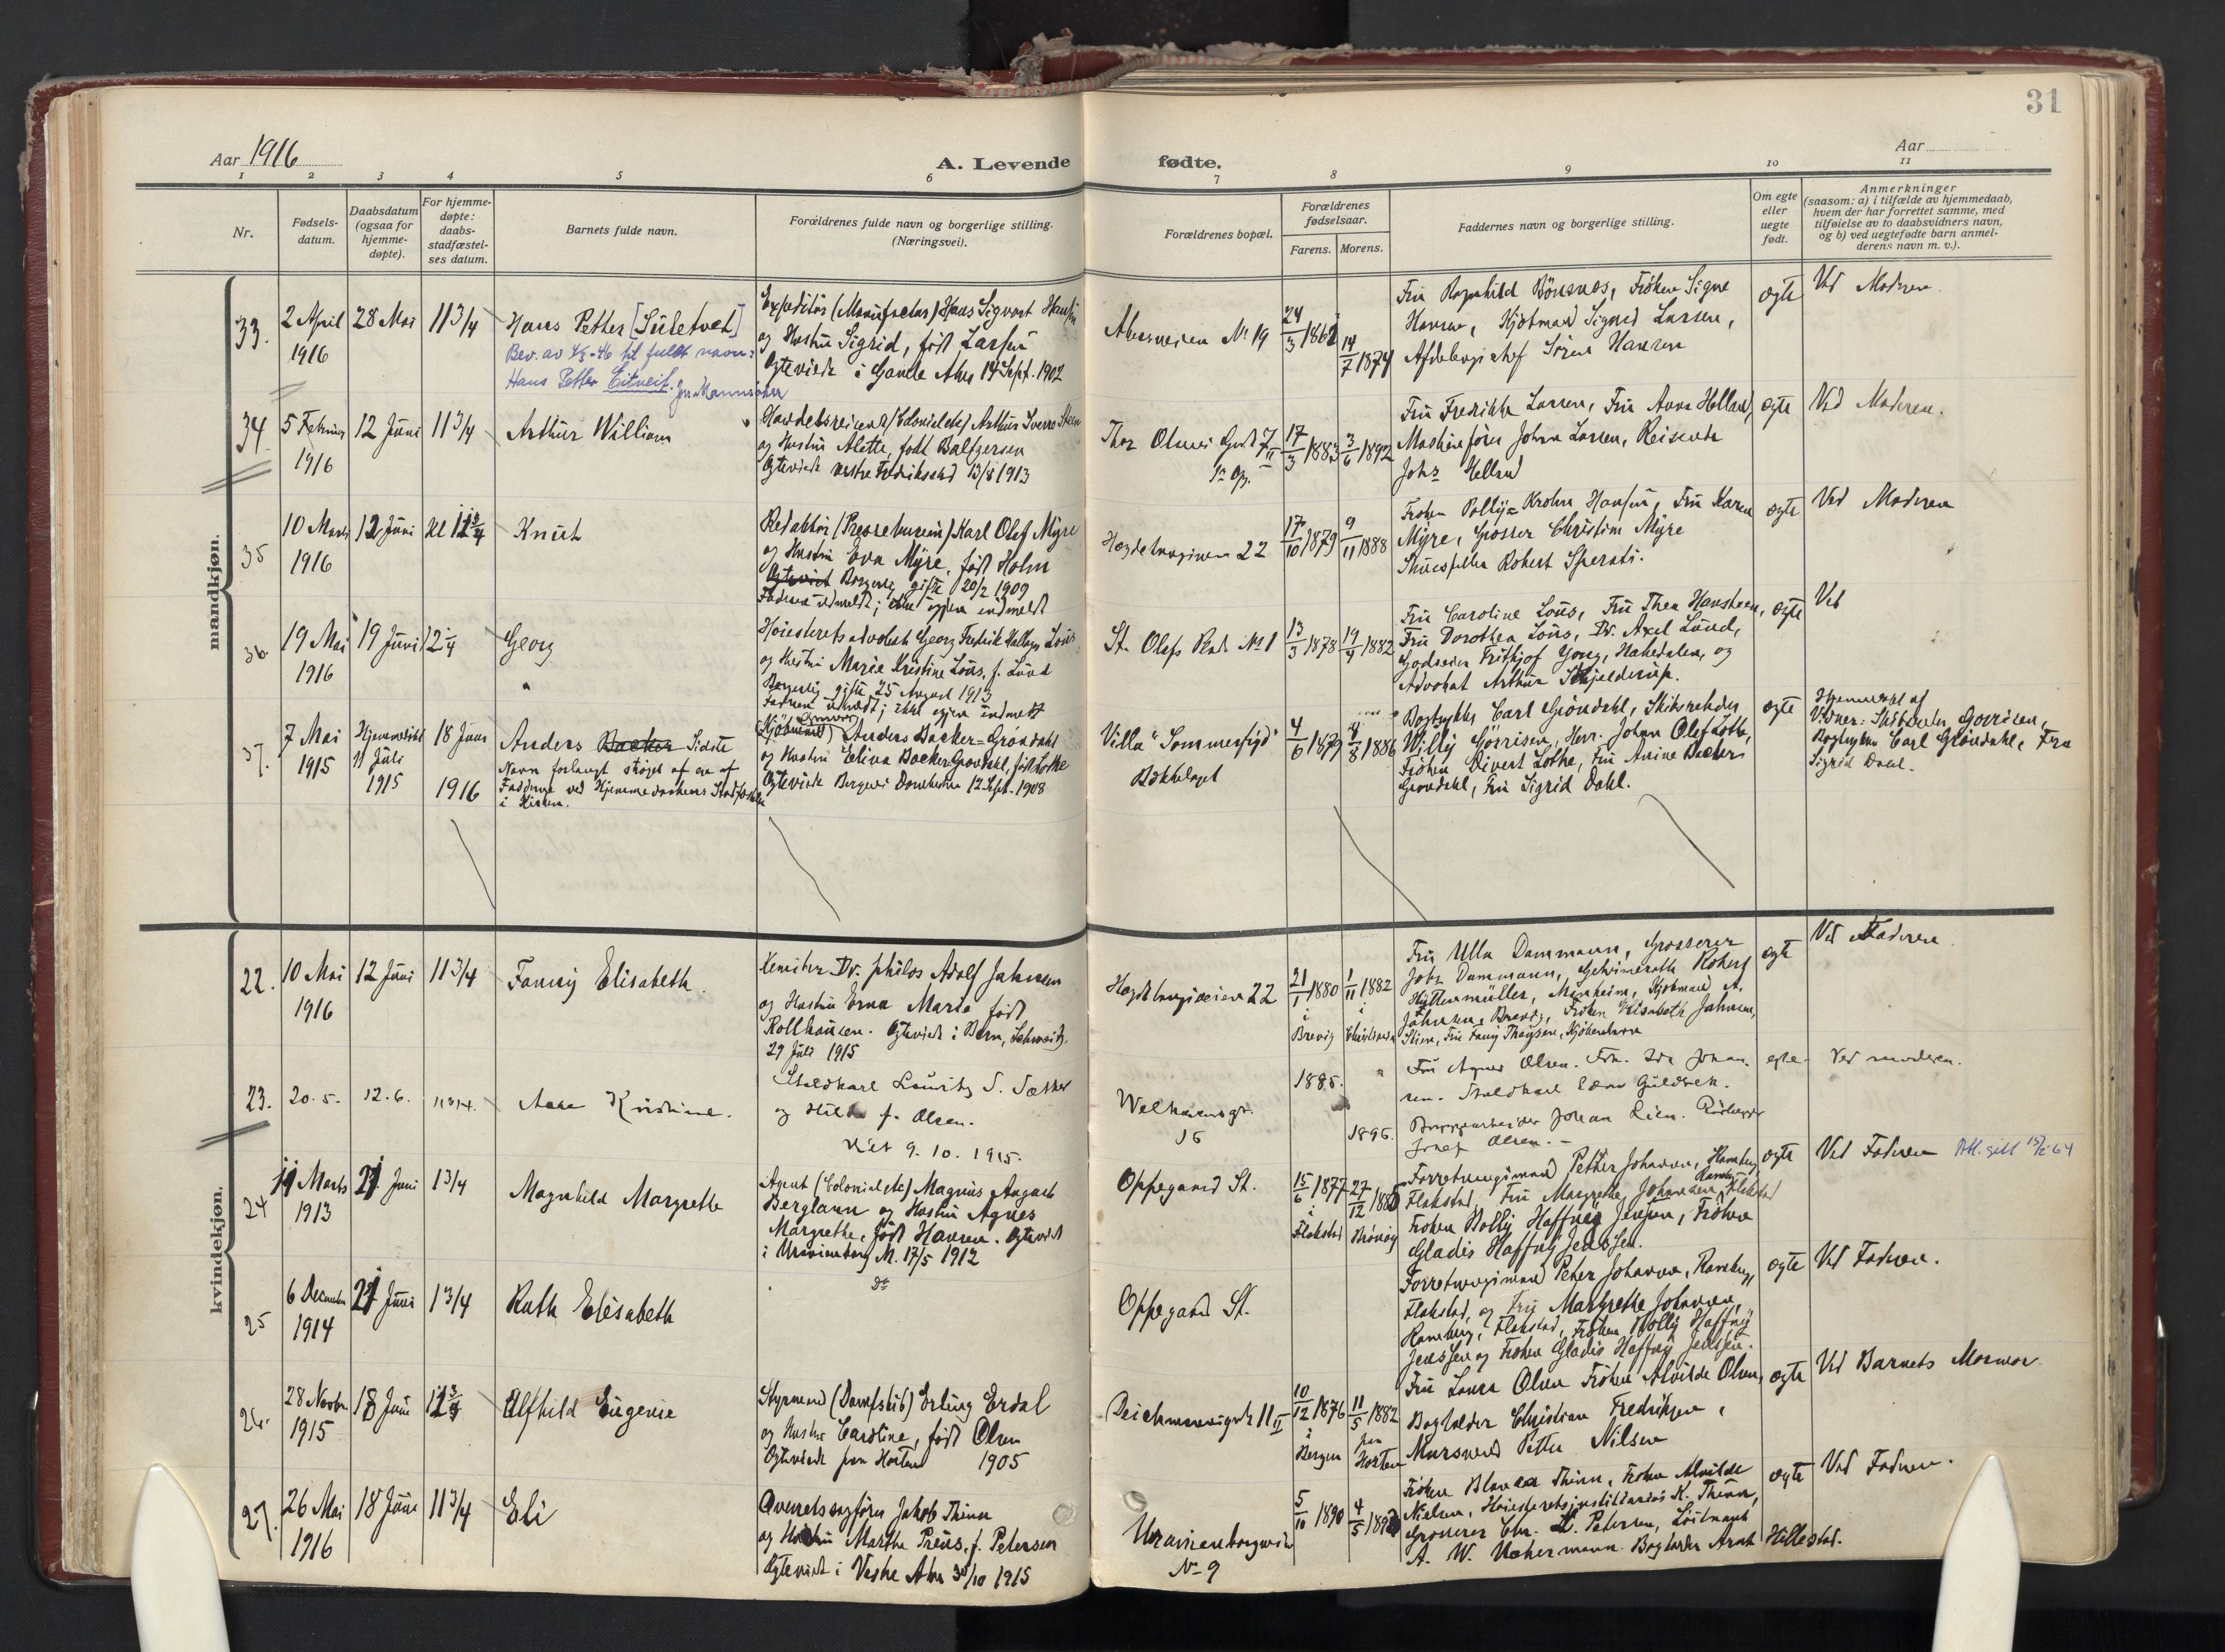 31
Aar 1916
A. Levende
fødte.
Aar
1 2 3 4 5 6 7 8 9 10 11
Nr.
Fødsels-
datum.
Daabsdatum
(ogsaa for
hjemme-
døpte).
For hjemme-
døpte:
daabs-
stadfæstel-
ses datum.
Barnets fulde navn.
Forældrenes fulde navn og borgerlige stilling.
(Næringsvei).
Forældrenes bopæl.
Forældrenes
fødselsaar.
Farens. Morens.
Faddernes navn og borgerlige stilling.
Om egte
eller
uegte
født.
Anmerkninger
(saasom: a) i tilfælde av hjemmedaab,
hvem der har forrettet samme, med
tilføielse av to daabsvidners navn,
og b) ved uegtefødte barn anmel-
derens navn m. v.).
mandkjøn.
33.
2 April
1916
28 Mai
11 3/4
Hans Petter
Hans Petter Eitveit.
Expeditør (Manufactur) Hans Sigvart Hansen
og Hustru Sigrid, født Larsen
Egteviede i Gamle Aker 14 Sept. 1902
Akersveien No 19
24/3 1862
14/7 1874
Fru Ragnhild Bönsnes, Fröken Signe
Hansen, Kjøbmand Sigurd Larsen,
Afdelingschef Sören Hansen
egte
Ved Moderen.
34.
5 Februar
1916
12 Juni
11 3/4
Arthur William
Handelsreisende (Colonial etc) Arthur Sverre Steen
og Hustru Alette, født Balgersen
Egteviede vestre Fredriksstad 13/8 1913
Thor Olsens Gade 7 II
17/3 1883
3/6 1892
Fru Fredrikke Larsen, Fru Anna Helland,
Maskinfører Johan Larsen, Reisende
Johs Helland
egte
Ved Moderen.
35
10 Marts
1916
12 Juni
Kl 11 3/4
Knut
Redaktör (Pressebureau) Karl Olaf Myre
og Hustru Eva Myre, født Holm
Borgerlig gifte 20/2 1909
Faderen udmeldt; ikke igjen indmeldt
Hegdehaugsveien 22
17/10 1879
9/11 1888
Fröken Polly Krohn Hansen, Fru Karen
Myre, Grosser Christian Myre
Skuespiller Robert Sperati.
egte
Ved Moderen
36.
19 Mai
1916
19 Juni
Georg
Höiesteretsadvokat Georg Fredrik Hallager Lous
og Hustru Marie Kristine Lous, f. Lund
Borgerlig gifte 25 August 1913
Faderen udmeldt; ikke igjen indmeldt
St. Olafs Plads No 1
13/3 1878
19/4 1882
Fru Caroline Lous, Fru Thea Hansteen,
Fru Dorothea Lous, Dr. Axel Lund,
Godseier Frithjof Young, Hakedalen, og
Advokat Arthur Skjelderup.
egte
Ved
37.
7 Mai
1915
Hjemmedöbt
11 Juli
1915
18 Juni
1916
Anders Backer Sidste
Navn forlangt strøget af en af
Fadderne ved Hjemmedaabens Stadfæstelse
i Kirken.
Anders Backer-Gröndahl
og Hustru Elina Backer-Gröndahl, født Lothe
Egteviede Bergens Domkirke 12 Sept. 1908
Villa "Sommerfryd"
Bækkelaget
4/6 1879
4/8 1886
Bogtrykker Carl Gröndahl, Skibsreder
Willy Görrisen, Herr. Johan Olaf Lothe,
Fröken Divert Lothe, Fru Anine Backer
Gröndahl, Fru Sigrid Dahl.
egte
Hjemmedöbt af
Vidner: Skibsreder Görrisen,
Bogtrykker Carl Gröndahl, Fru
Sigrid Dahl.
kvindekjøn.
22.
10 Mai
1916
12 Juni
11 3/4
Fanny Elisabeth.
Kemiker Dr. philos Adolf Jahnsen
og Hustru Erna Marie født
Rollhausen. Egteviede i Bern, Schweitz,
29 Juli 1915
Hegdehaugsveien 22
21/1 1880
i
Brevig
1/11 1882
i
Fru Ulla Dammann, Grosserer
Johs Dammann, Geheimerath Robert
Hüttenmüller, Manheim, Kjöbmand A.
Jahnsen, Brevig, Fröken Elisabeth Jahnsen,
Skien, Fru Fanny Thaysen, Kjöbenhavn
egte
Ved Faderen
23.
20.5.
12.6.
11 3/4.
Aase Kristine.
Staldkarl Lauritz S. Sæther
og Hilda f. Olsen.
Viet 9.10.1915.
Welhavensgt.
15
1885.
1895.
Fru Agnes Olsen. Frk. Ida Johan-
sen. Staldkarl Edvin Guldbek.
Bryggearbeider Johan Lien. Rørlægger
Josef Olsen.
egte
Ved moderen.
24
11 Marts
1913
21 Juni
1 3/4
Magnhild Margrethe
Agent (Colonial etc) Magnus August
Berglann og Hustru Agnes
Margrethe, født Hansen. Egteviet
i Uranienborg M. 17/5 1912
Oppegaard St.
15/6 1877
i
Flakstad
27/12 1885
Brönöy
Forretningsmand Petter Johansen, Ramberg,
Flakstad, Fru Margrethe Johansen, Ramberg, Flakstad
Fröken Bolly Haffner Jenssen, Fröken
Gladis Haffny Jenssen.
egte
Ved Faderen
25
6 December
1914
21 Juni
1 3/4
Ruth Elisabeth
Do
Oppegaard St.
Forretningsmand Peter Johansen, Ramberg,
Flakstad, og Fru Margrethe Johansen,
Ramberg, Flakstad, Fröken Bolly Haffny
Jenssen og Fröken Gladis Haffny Jenssen.
egte
Ved Faderen.
26.
28 Novbr
1915
18 Juni
11 3/4
Alfhild Eugenie
Styrmand (Dampskib) Erling Erdal
og Hustru Caroline, født Olsen
Egteviede paa Horten 1905
Deichmannsgade 11 II
10/12 1876
i
Bergen
11/5 1882
paa
Horten
Fru Laura Olsen Fröken Alvilde Olsen,
Bogholder Christian Fredriksen,
Murmand Petter Nilsen
egte
Ved Barnets Mormor.
27.
26 Mai
1916
18 Juni
11 3/4
Eli
Overretssagfører Jakob Thinn
og Hustru Marthe Preus, f. Petersen
Egteviede i Vestre Aker 30/10 1915
Uranienborgveien
No 9
5/10 1890
4/5
Fröken Blanca Thinn, Fröken Alvilde
Nielsen, Høiesteretsjustitiarius K. Thinn,
Grosserer Chr. H. Petersen, Löitnant
A. W. Uchermann. Bogholder Arnt Hillestad.
egte
Ved Faderen.